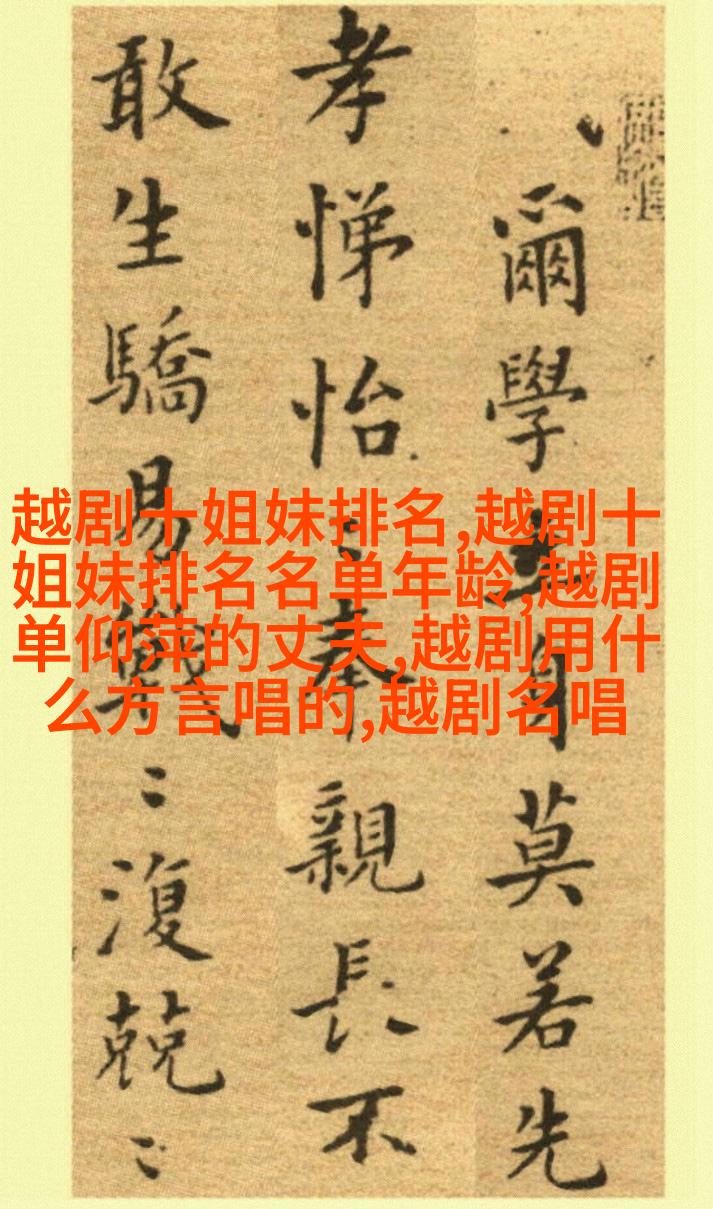 爾學立身莫若先
孝悌怡〻奉親長不
敢生驕易戰〻復兢〻
越剧十姐妹排名,越剧十
姐妹排名名单年龄,越剧
单仰萍的丈夫,越剧用什
么方言唱的,越剧名唱